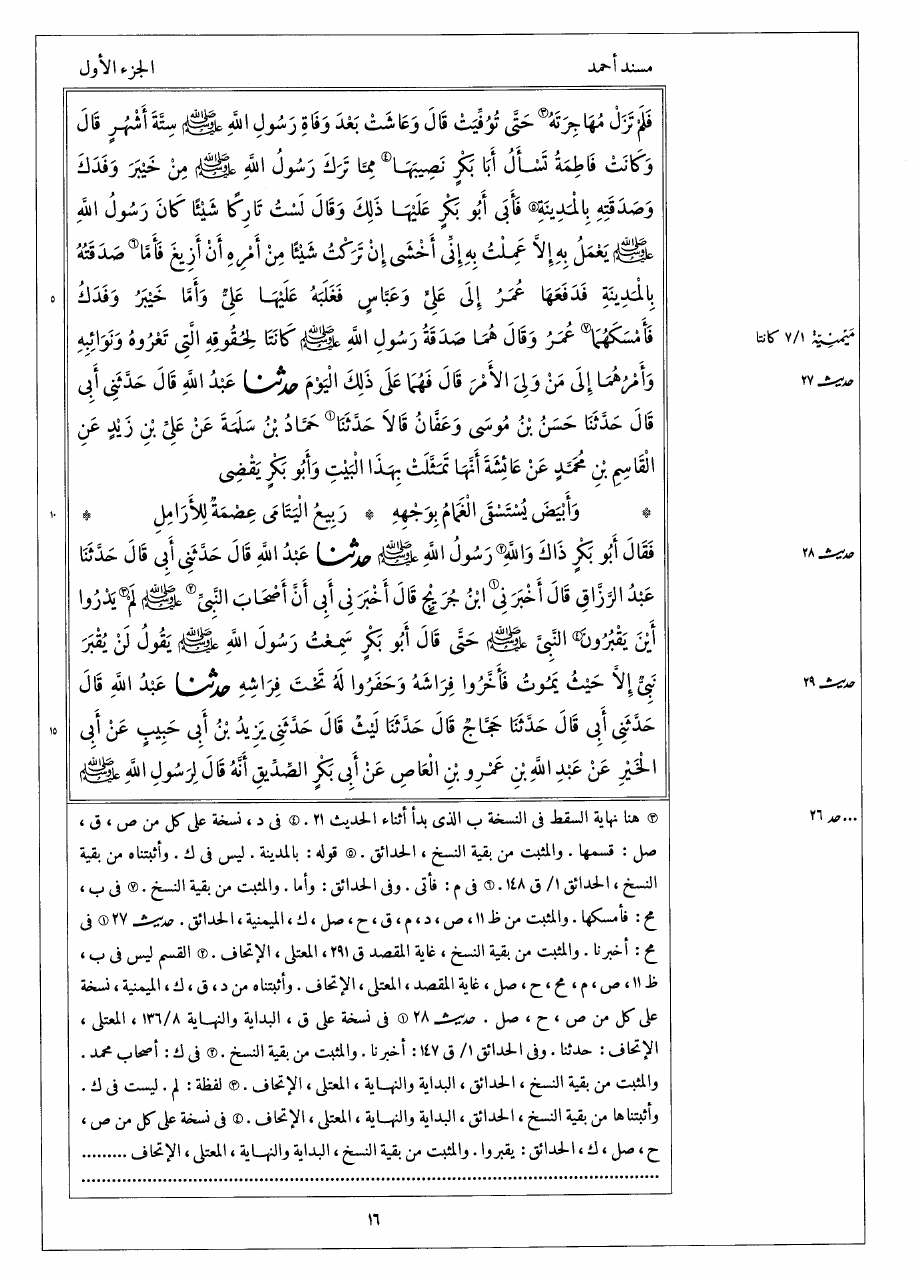 مسند أحمد
الجزء الأول
فَلَمْ تَزَلْ مُهَاجِرَتَهُ③ حَتَّى تُوُفِّيَتْ قَالَ وَعَاشَتْ بَعْدَ وَفَاةِ رَسُولِ اللَّهِ ﷺ سِتَّةَ أَشْهُرٍ قَالَ
وَكَانَتْ فَاطِمَةُ تَسْأَلُ أَبَا بَكْرٍ نَصِيبَهَا④ مِمَّا تَرَكَ رَسُولُ اللَّهِ ﷺ مِنْ خَيْبَرَ وَفَدَكَ
وَصَدَقَتِهِ بِالْمَدِينَةِ⑤ فَأَبَى أَبُو بَكْرٍ عَلَيْهَا ذَلِكَ وَقَالَ لَسْتُ تَارِكًا شَيْئًا كَانَ رَسُولُ اللَّهِ
ﷺ يَعْمَلُ بِهِ إِلاَّ عَمِلْتُ بِهِ إِنِّي أَخْشَى إِنْ تَرَكْتُ شَيْئًا مِنْ أَمْرِهِ أَنْ أَزِيغَ فَأَمَّا⑥ صَدَقَتُهُ
بِالْمَدِينَةِ فَدَفَعَهَا عُمَرُ إِلَى عَلِيٍّ وَعَبَّاسٍ فَغَلَبَهُ عَلَيْهَا عَلِيٌّ وَأَمَّا خَيْبَرُ وَفَدَكُ
٥
فَأَمْسَكَهُمَا⑦ عُمَرُ وَقَالَ هُمَا صَدَقَةُ رَسُولِ اللَّهِ ﷺ كَانَتَا لِحُقُوقِهِ الَّتِي تَعْرُوهُ وَنَوَائِبِهِ
مَيْمَنِيّة ٧/١ كانتا
وَأَمْرُهُمَا إِلَى مَنْ وَلِيَ الأَمْرَ قَالَ فَهُمَا عَلَى ذَلِكَ الْيَوْمَ حدثنا عَبْدُ اللَّهِ قَالَ حَدَّثَنِي أَبِي
حديث ٢٧
قَالَ حَدَّثَنَا حَسَنُ بْنُ مُوسَى وَعَفَّانُ قَالاَ حَدَّثَنَا① حَمَّادُ بْنُ سَلَمَةَ عَنْ عَلِيِّ بْنِ زَيْدٍ عَنِ
الْقَاسِمِ بْنِ مُحَمَّدٍ عَنْ عَائِشَةَ أَنَّهَا تَمَثَّلَتْ بِهَذَا الْبَيْتِ وَأَبُو بَكْرٍ يَقْضِي
* وَأَبْيَضَ يُسْتَسْقَى الْغَمَامُ بِوَجْهِهِ * رَبِيعُ الْيَتَامَى عِصْمَةٌ لِلأَرَامِلِ *
١٠
فَقَالَ أَبُو بَكْرٍ ذَاكَ وَاللَّهِ② رَسُولُ اللَّهِ ﷺ حدثنا عَبْدُ اللَّهِ قَالَ حَدَّثَنِي أَبِي قَالَ حَدَّثَنَا
حديث ٢٨
عَبْدُ الرَّزَّاقِ قَالَ أَخْبَرَنِي① ابْنُ جُرَيْجٍ قَالَ أَخْبَرَنِي أَبِي أَنَّ أَصْحَابَ النَّبِيِّ② ﷺ لَمْ③ يَدْرُوا
أَيْنَ يَقْبُرُونَ④ النَّبِيَّ ﷺ حَتَّى قَالَ أَبُو بَكْرٍ سَمِعْتُ رَسُولَ اللَّهِ ﷺ يَقُولُ لَنْ يُقْبَرَ
نَبِيٌّ إِلاَّ حَيْثُ يَمُوتُ فَأَخَّرُوا فِرَاشَهُ وَحَفَرُوا لَهُ تَحْتَ فِرَاشِهِ حدثنا عَبْدُ اللَّهِ قَالَ
حديث ٢٩
حَدَّثَنِي أَبِي قَالَ حَدَّثَنَا حَجَّاجٌ قَالَ حَدَّثَنَا لَيْثٌ قَالَ حَدَّثَنِي يَزِيدُ بْنُ أَبِي حَبِيبٍ عَنْ أَبِي
١٥
الْخَيْرِ عَنْ عَبْدِ اللَّهِ بْنِ عَمْرِو بْنِ الْعَاصِ عَنْ أَبِي بَكْرٍ الصِّدِّيقِ أَنَّهُ قَالَ لِرَسُولِ اللَّهِ ﷺ
...حد ٢٦
③ هنا نهاية السقط فى النسخة ب الذى بدأ أثناء الحديث ٢١. ④ فى د ، نسخة على كل من ص ، ق ،
صل : قسمها . والمثبت من بقية النسخ ، الحدائق . ⑤ قوله : بالمدينة . ليس فى ك . وأثبتناه من بقية
النسخ ، الحدائق ١/ ق ١٤٨. ⑥ فى م : فأتى . وفى الحدائق : وأما . والمثبت من بقية النسخ . ⑦ فى ب ،
مح : فأمسكها . والمثبت من ظ ١١، ص ، د ، م ، ق ، ح ، صل ، ك ، الميمنية ، الحدائق . حديث ٢٧ ① فى
مح : أخبرنا . والمثبت من بقية النسخ ، غاية المقصد ق ٢٩١، المعتلى ، الإتحاف . ② القسم ليس فى ب ،
ظ ١١، ص ، م ، مح ، ح ، صل ، غاية المقصد ، المعتلى ، الإتحاف . وأثبتناه من د ، ق ، ك ، الميمنية ، نسخة
على كل من ص ، ح ، صل . حديث ٢٨ ① فى نسخة على ق ، البداية والنهاية ١٣٦/٨ ، المعتلى ،
الإتحاف : حدثنا . وفى الحدائق ١/ ق ١٤٧: أخبرنا . والمثبت من بقية النسخ . ② فى ك : أصحاب محمد .
والمثبت من بقية النسخ ، الحدائق ، البداية والنهاية ، المعتلى ، الإتحاف . ③ لفظة : لم . ليست فى ك .
وأثبتناها من بقية النسخ ، الحدائق ، البداية والنهاية ، المعتلى ، الإتحاف . ④ فى نسخة على كل من ص ،
ح ، صل ، ك ، الحدائق : يقبروا . والمثبت من بقية النسخ ، البداية والنهاية ، المعتلى ، الإتحاف .........
١٦